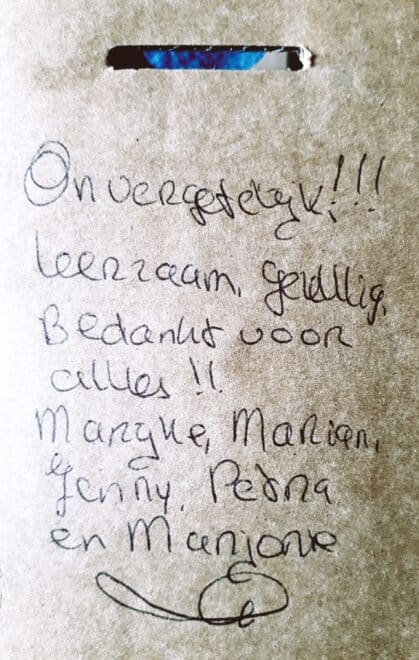 Onvergetelijk!!!
Leerzaam, gezellig,
Bedankt voor
alles!!
Maryke, Marian,
Jenny, Petra
en Marjorie